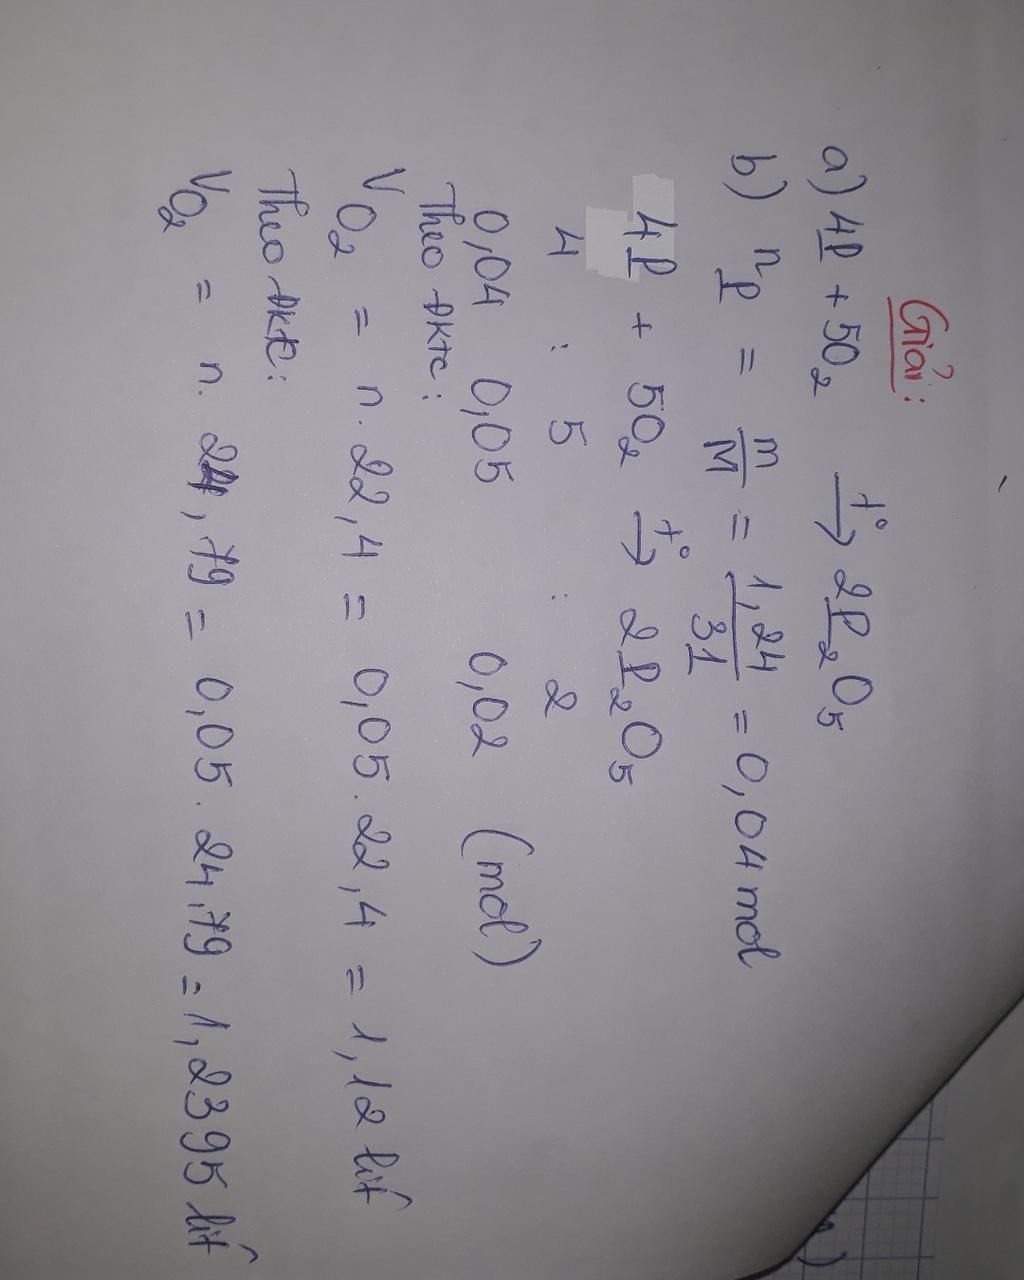 Giải:
a) 4P + 5O₂ t°→ 2P₂O₅
b) nP = m/M = 1,24/31 = 0,04 mol
4P + 5O₂ t°→ 2P₂O₅
4 : 5 : 2
0,04 0,05 0,02 (mol)
Theo đktc:
VO₂ = n. 22,4 = 0,05 . 22,4 = 1,12 lít
Theo đkc:
VO₂ = n. 24,79 = 0,05 . 24,79 = 1,2395 lít